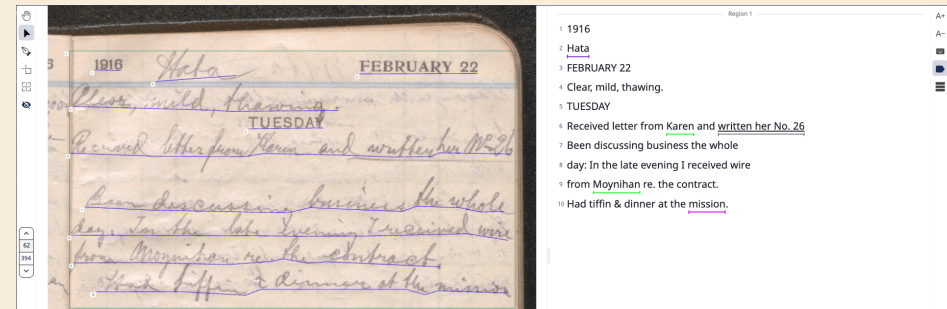 1916 Hata FEBRUARY 22
Clear, mild, thawing.
TUESDAY
Received letter from Karin and written her No 26
Been discussing business the whole
day. In the late evening I received wire
from Moynihan re. the contract.
Had tiffin & dinner at the mission
62
394
Region 1
1 1916
2 Hata
3 FEBRUARY 22
4 Clear, mild, thawing.
5 TUESDAY
6 Received letter from Karen and written her No. 26
7 Been discussing business the whole
8 day: In the late evening I received wire
9 from Moynihan re. the contract.
10 Had tiffin & dinner at the mission.
A+
A−